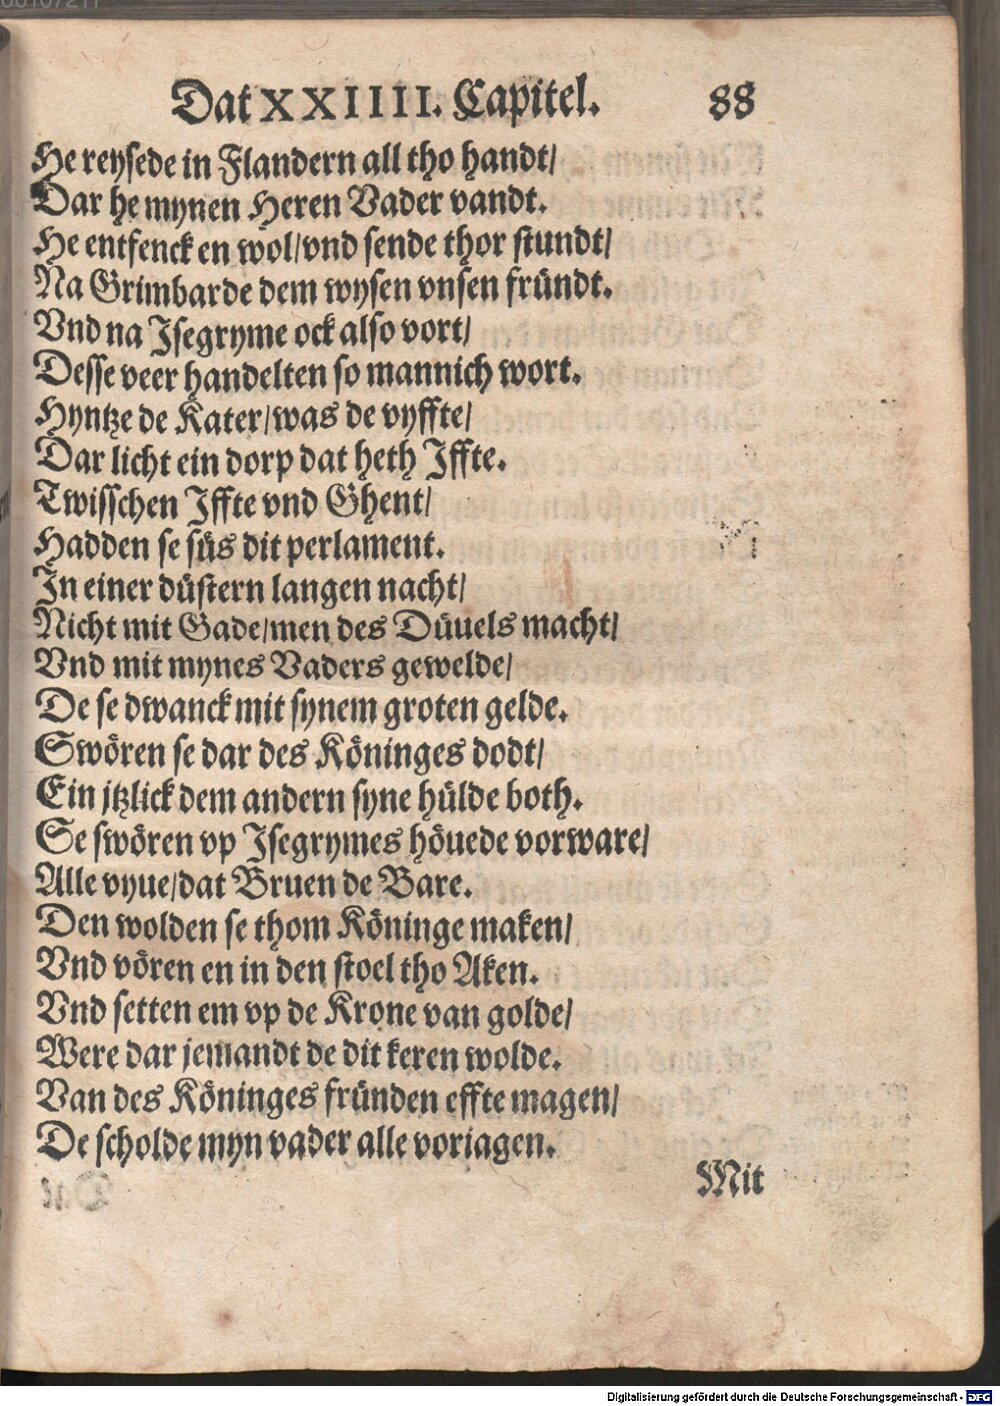 Dat XXIIII. Capitel. 88
He reysede in Flandern all tho handt/
Dar he mynen Heren Vader vandt.
He entfenck en wol/vnd sende thor stundt/
Na Grimbarde dem wysen vnsen fründt.
Vnd na Isegryme ock also vort/
Desse veer handelten so mannich wort.
Hyntze de Kater/was de vyffte/
Dar licht ein dorp dat heth Iffte.
Twisschen Iffte vnd Ghent/
Hadden se süs dit perlament.
In einer düstern langen nacht/
Nicht mit Gade/men des Düuels macht/
Vnd mit mynes Vaders gewelde/
De se dwanck mit synem groten gelde.
Swören se dar des Köninges dodt/
Ein jtzlick dem andern syne hülde both.
Se swören vp Isegrymes höuede vorware/
Alle vyue/dat Bruen de Bare.
Den wolden se thom Köninge maken/
Vnd vören en in den stoel tho Aken.
Vnd setten em vp de Krone van golde/
Were dar jemandt de dit keren wolde.
Van des Köninges fründen effte magen/
De scholde myn vader alle voriagen.
Mit
Digitalisierung gefördert durch die Deutsche Forschungsgemeinschaft - DFG